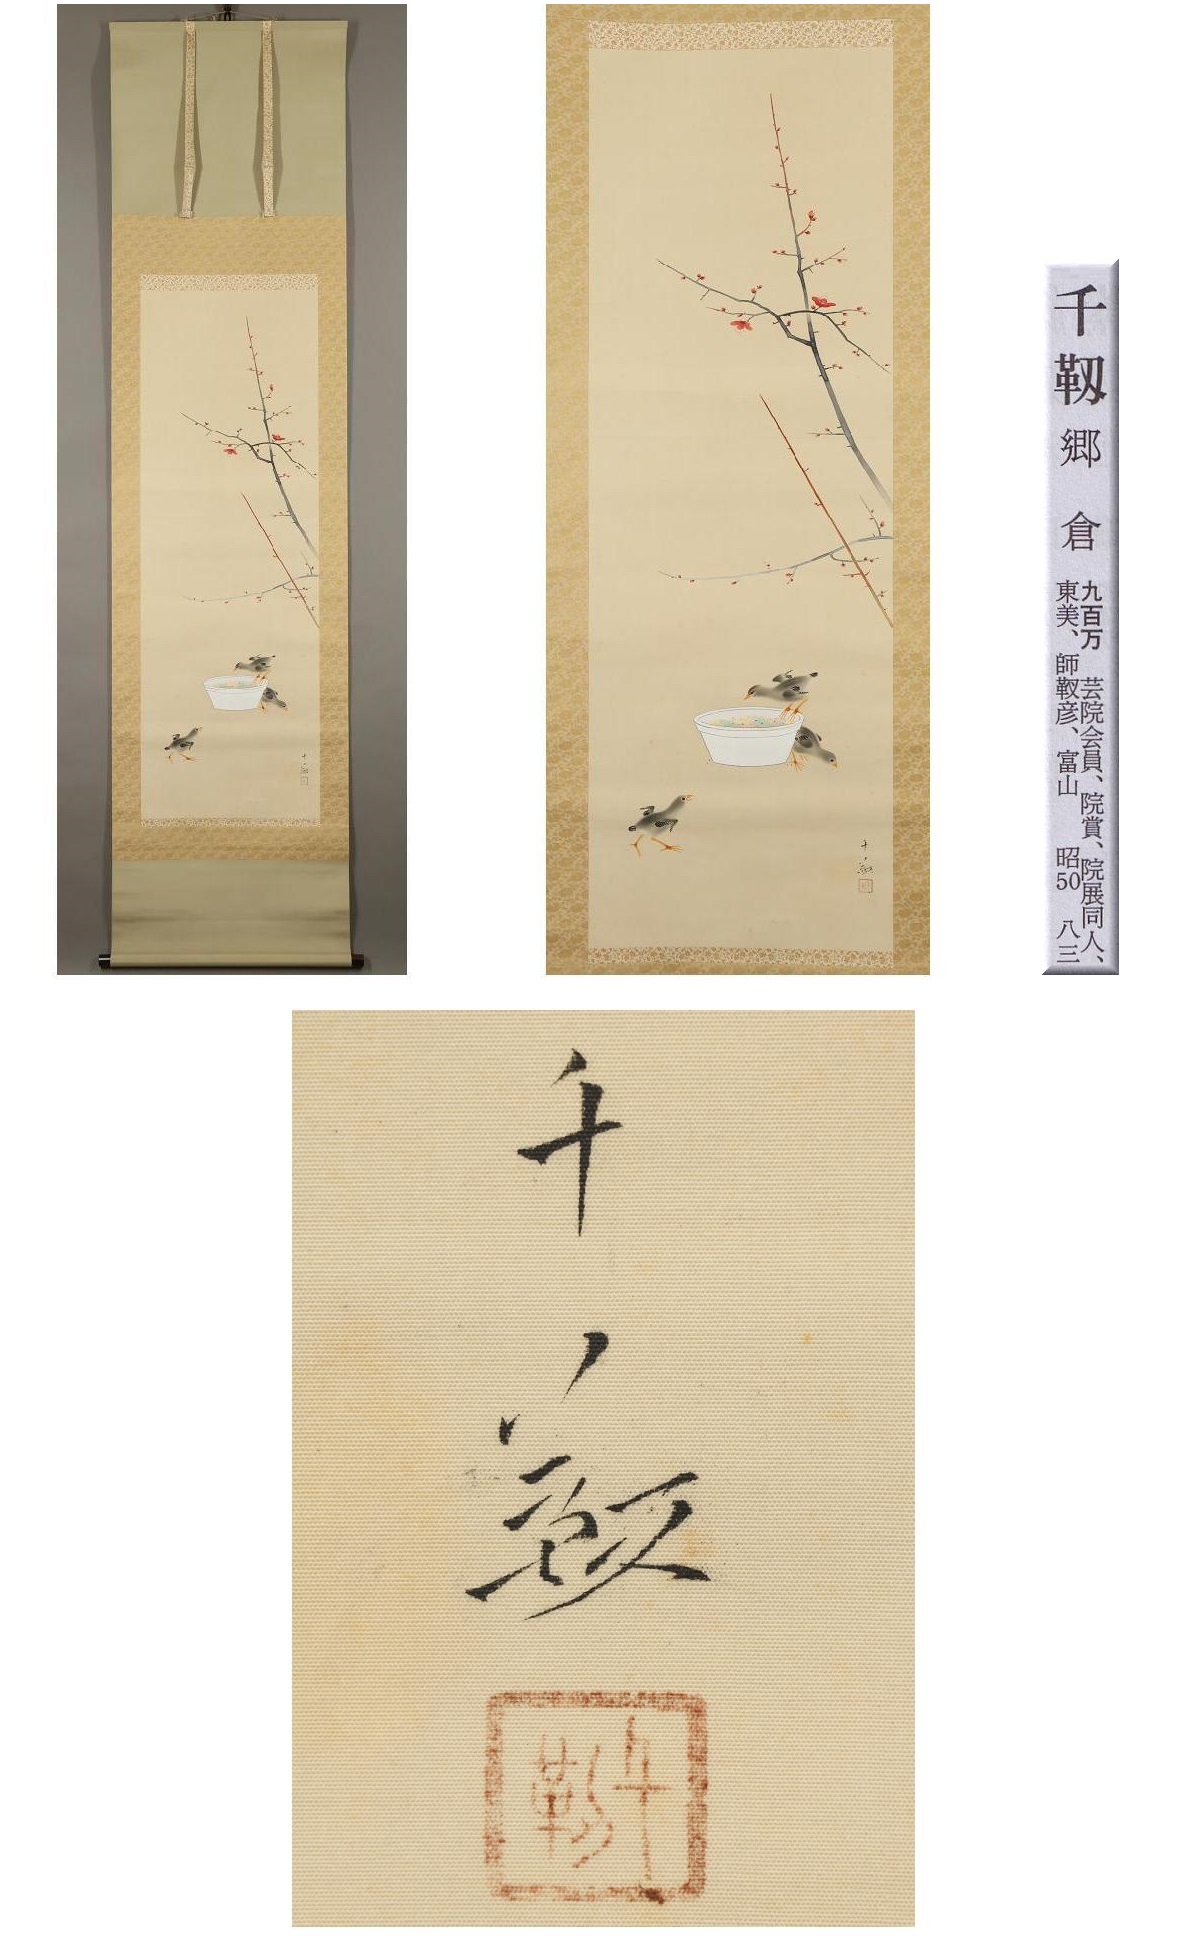 千靱 郷倉
九百万 芸院会員、院賞、院展同人、
東美、師靫彦、富山 昭50 八三
千靱
千靱